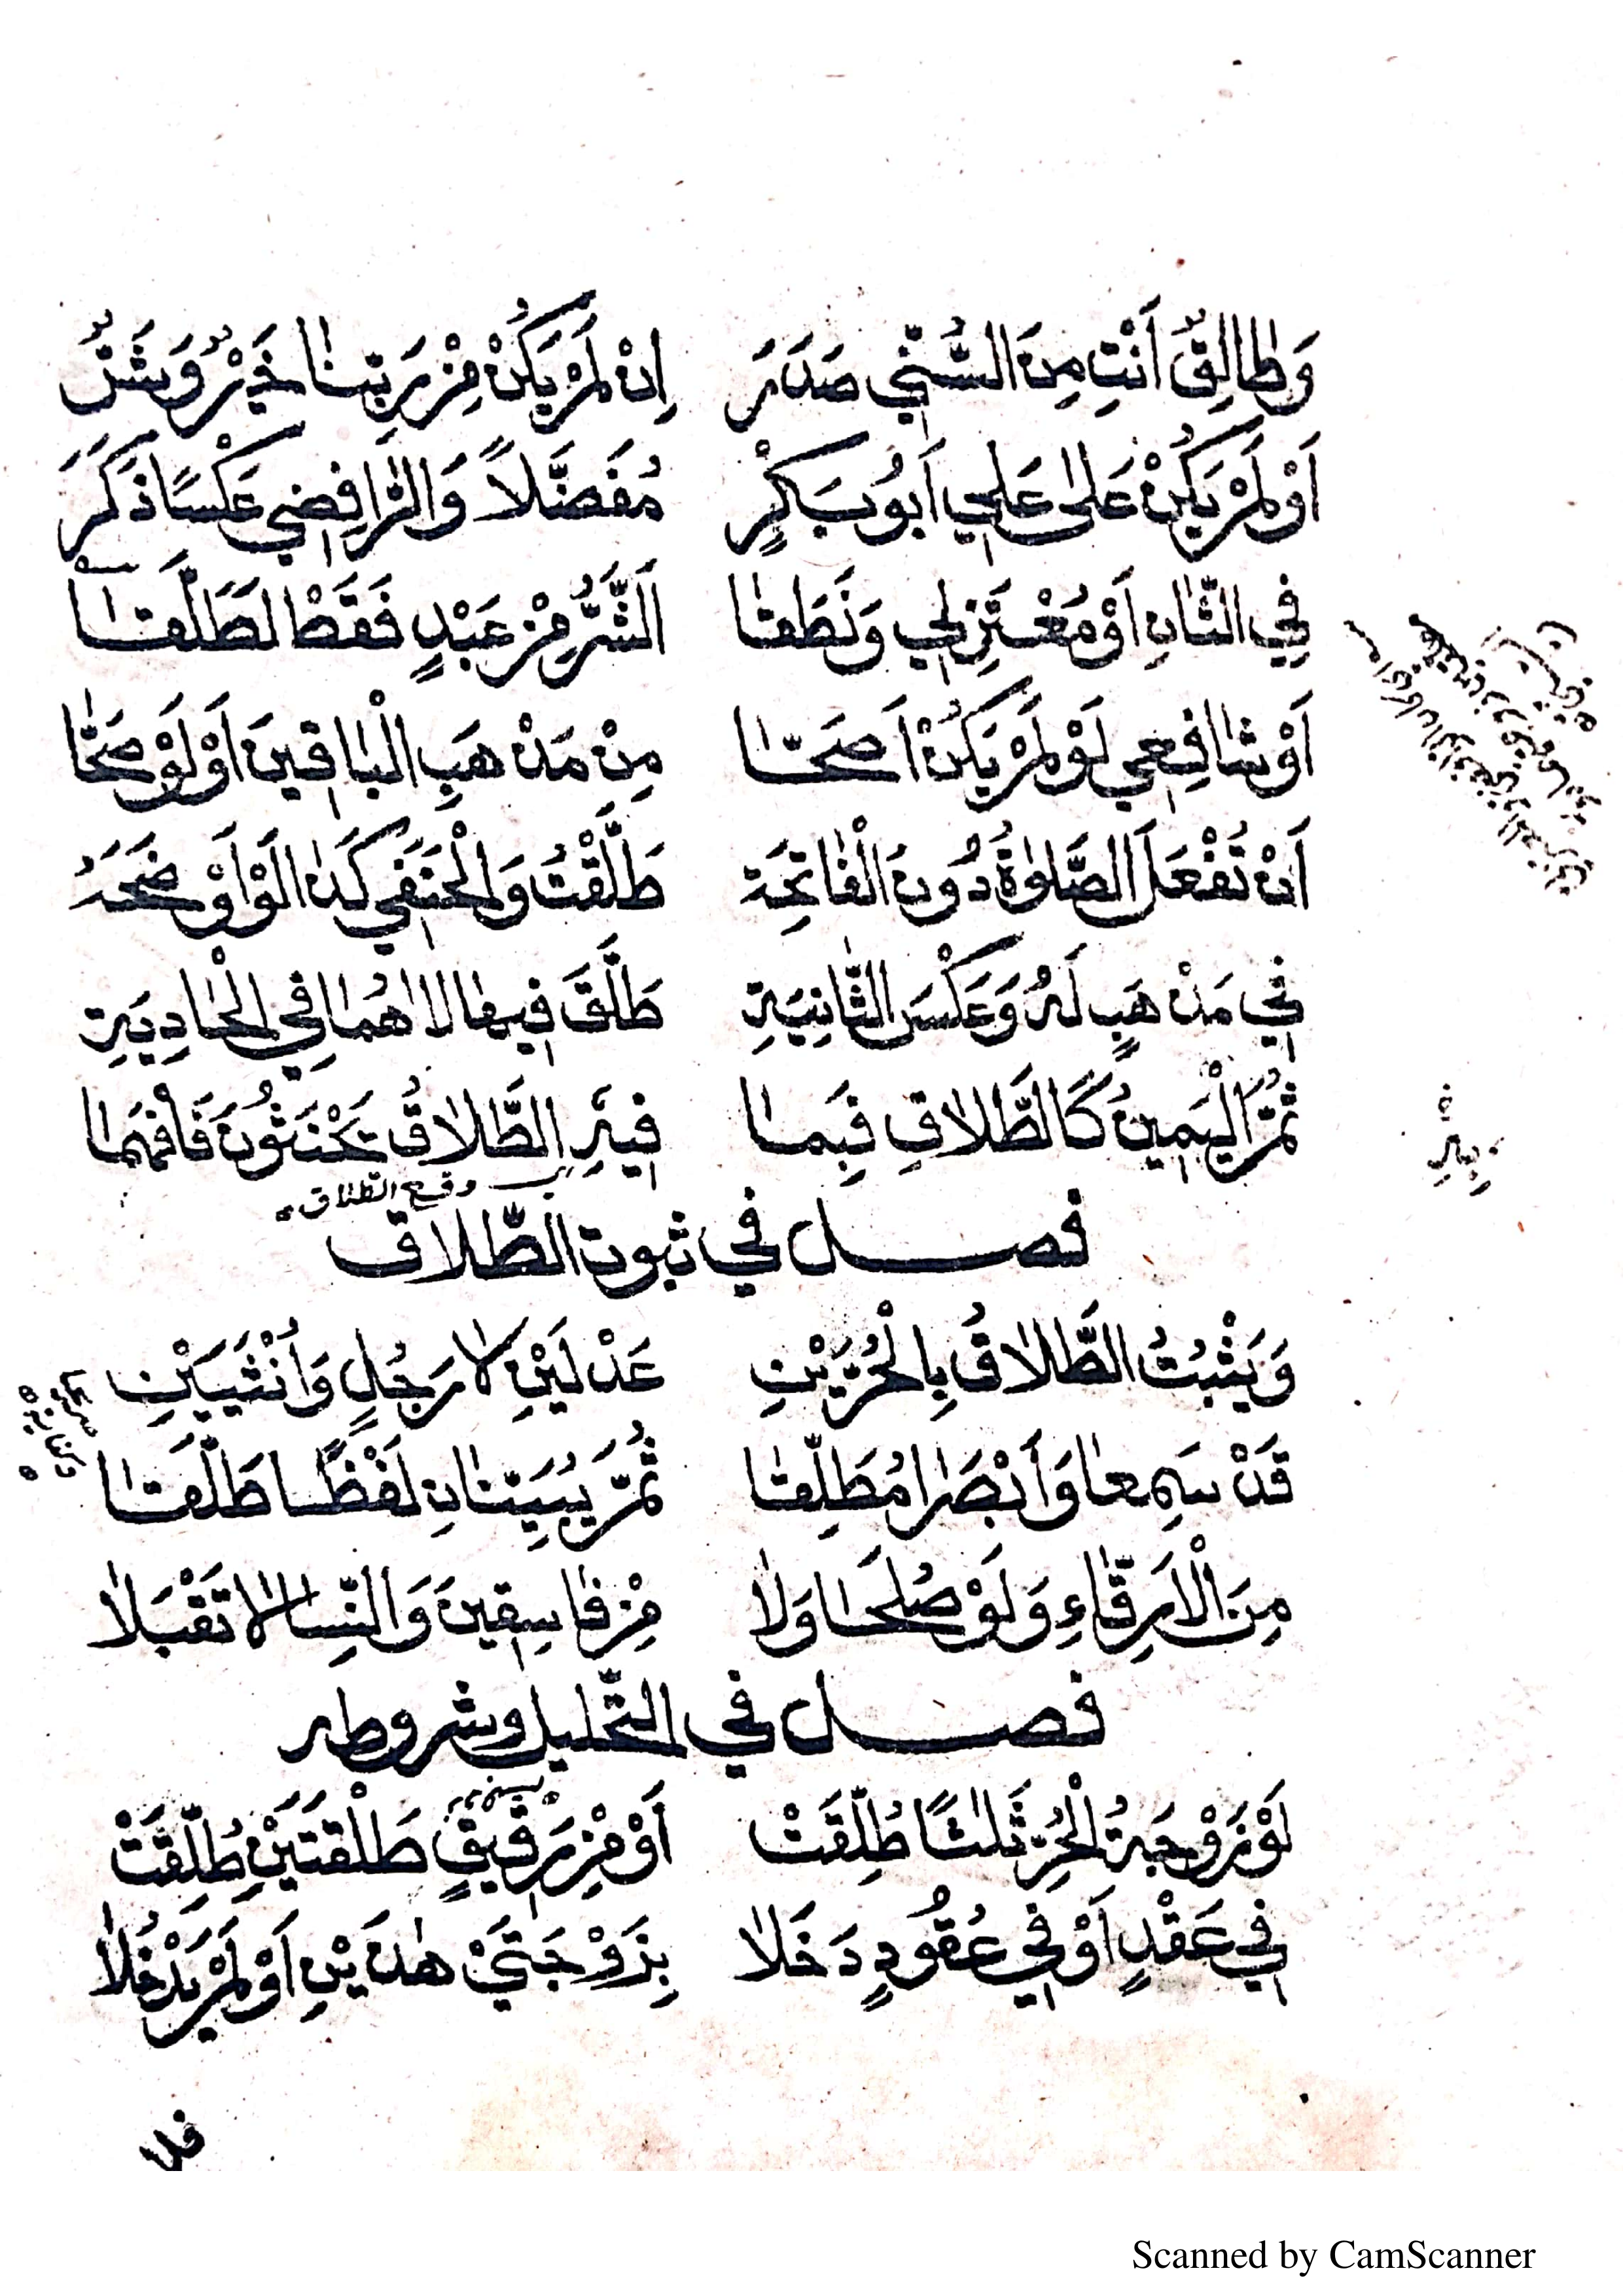 وَطَالِقٌ اَنْتِ مِنَ السُّنِّي صَدَرَ اِنْ لَمْ يَكُنْ مِنْ رَبِّنَا خَيْرٌ وَشَرٌّ
اَوْ لَمْ يَكُنْ عَلٰى عَلِي اَبُو بَكْرٍ مُفَضَّلًا وَالرَّافِضِي عَكْسًا ذَكَرَ
فِي الثَّانِ اَوْ مُعْتَزِلِي وَنَطَقَا اَلشَّرُّ مِنْ عَبْدٍ فَقَطْ لَطَلَّقَا
اَوْ شَافِعِي لَوْ لَمْ يَكُنْ اَصَحَّا مِنْ مَذْهَبِ الْبَاقِينَ اَوْ لَوْ صَحَّا
اَنْ تُفْعَلَ الصَّلٰوةُ دُونَ الْفَاتِحَة طَلَّقْتُ وَالْحَنَفِي كَذَا لَوْ اَوْضَحَهُ
فِي مَذْهَبٍ لَهُ وَعَكْسَ الثَّانِيَةِ طَلَّقَ فِيهَا لَا هُمَا فِي الْحَادِيَةِ
ثُمَّ الْيَمِينُ كَالطَّلَاقِ فَبِمَا فِيهِ الطَّلَاقُ تَحْنَثُونَ فَافْهَمَا
وقع الطلاق
فصل في ثبوت الطّلاق
وَيَثْبُتُ الطَّلَاقُ بِالْحُرَّيْنِ عَدْلَيْنِ لَا رَجُلٍ وَأُنْثَيَيْنِ
قَدْ سَمِعَا وَأَبْصَرَا مُطَلِّقَا ثُمَّ يُبَيِّنَانِ لَفْظًا طَلَّقَا
مِنَ الْاَرِقَّاءِ وَلَوْ صُلَحَا وَلَا مِنْ فَاسِقِينَ وَالنِّسَا لَا تَقْبَلَا
فصل في التّحليل وشروطه
لَوْ زَوْجَةُ الْحُرِّ ثَلٰثًا طُلِّقَتْ اَوْ مِنْ رَقِيقٍ طَلْقَتَيْنِ طُلِّقَتْ
فِي عَقْدٍ اَوْ فِي عُقُودٍ دَخَلَا بِزَوْجَتَيْ هٰذَيْنِ اَوْ لَمْ يَدْخُلَا
فلا
Scanned by CamScanner